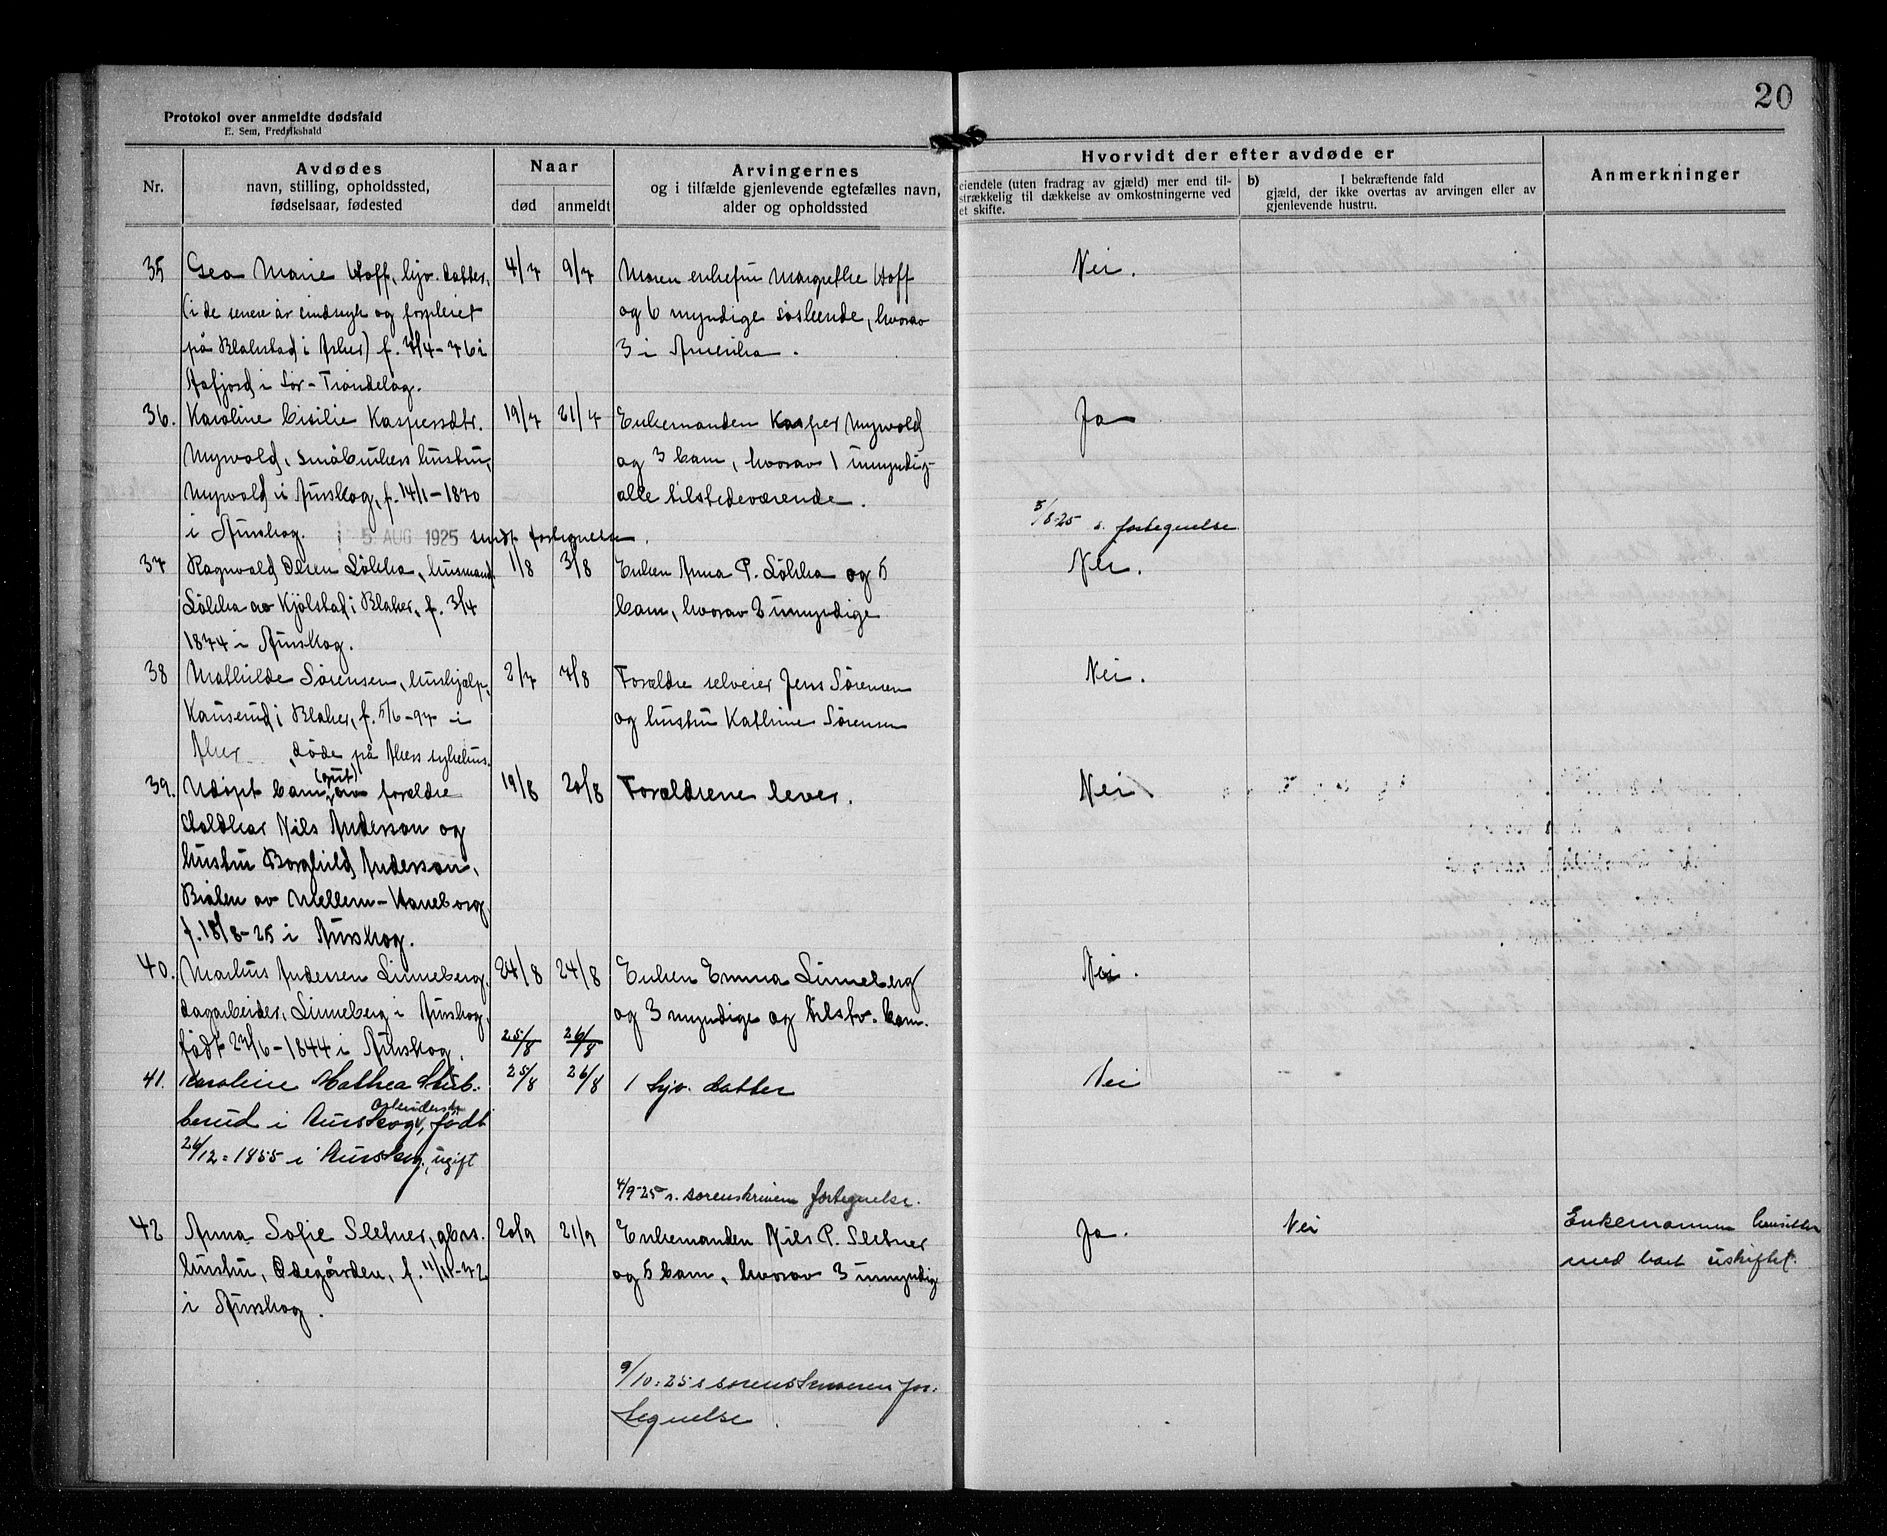 20
Protokol over anmeldte dødsfald
E. Sem, Fredrikshald
Nr.
Avdødes
navn, stilling, opholdssted,
fødselsaar, fødested
Naar
død
anmeldt
Arvingernes
og i tilfælde gjenlevende egtefælles navn,
alder og opholdssted
Hvorvidt der efter avdøde er
eiendele (uten fradrag av gjæld) mer end til-
strækkelig til dækkelse av omkostningerne ved
et skifte.
b) I bekræftende fald
gjæld, der ikke overtas av arvingen eller av
gjenlevende hustru.
Anmerkninger
35
Gea Marie Hoff, hjv. datter,
(i de senere år sindsyk og forpleiet
på Blakstad i Asker) f. 3/4-76 i
Aafjord i Sør-Trøndelag.
4/7
9/7
Moren enkefru Margrethe Hoff
og 6 myndige søskende, hvorav
3 i Amerika.
Nei.
36.
Karoline Cisilie Kaspersdtr.
Myrvold, småbrukers hustru,
Myrvold i Aurskog, f. 14/1-1870
i Aurskog.
19/7
21/7
Enkemanden Kasper Myrvold
og 3 barn, hvorav 1 umyndig-
alle tilstedeværende.
Ja
5 AUG 1925 sendt fortegnelse.
5/8-25 s. fortegnelse
37
Ragnvald Olsen Løkka, husmand,
Løkka av Kjølstad i Blaker, f. 3/4
1874 i Aurskog.
1/8
3/8
Enken Anna P. Løkka og 5
barn, hvorav 2 umyndige
Nei.
38
Mathilde Sørensen, hushjælp,
Kauserud i Blaker, f. 5/6-97 i
Aker døde på Akers sykehus.
2/7
7/8
Forældre selveier Jens Sørensen
og hustru Kathrine Sørensen
Nei.
39.
Udøpt barn (gut) av forældre
Nils Anderson og
hustru Borghild Anderson,
Bråten av Mellem-Haneborg,
f. 18/8-25 i Aurskog.
19/8
20/8
Forældrene lever.
Nei
40.
Markus Andersen Linneberg,
dagarbeider, Linneberg i Aurskog,
født 27/6-1844 i Aurskog.
24/8
24/8
Enken Emma Linneberg
og 3 myndige og tilstv. barn.
Nei.
25/8
26/8
41.
Karoline Mathea Stub-
berud i Aurskog, født
26/12-1855 i Aurskog, ugift
25/8
26/8
1 hjv. datter
Nei
4/9-25 s. sorenskriveren fortegnelse.
42
Anna Sofie Sletner, gbrs.
hustru, Ødegården, f. 11/11-72
i Aurskog.
20/9
21/9
Enkemanden Nils P. Sletner
og 5 barn, hvorav 3 umyndige
Ja.
Nei
Enkemannen hensitter
med boet uskiftet.
9/10-25 s sorenskriveren for-
tegnelse